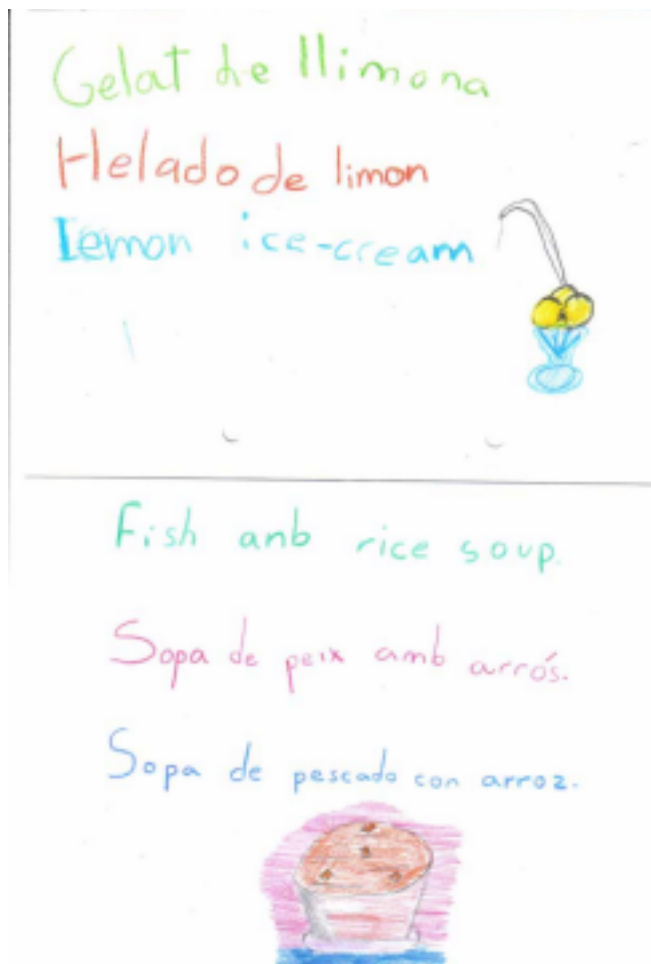 Gelat de llimona
Helado de limon
Lemon ice-cream
Fish anb rice soup.
Sopa de peix amb arrós.
Sopa de pescado con arroz.